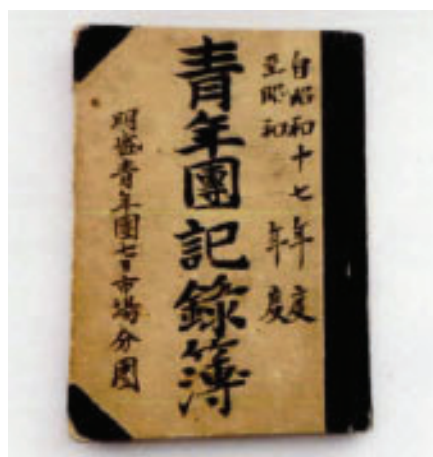 自昭和十七年度
至昭和 年度
青年團記錄簿
明盛青年團七日市場分團